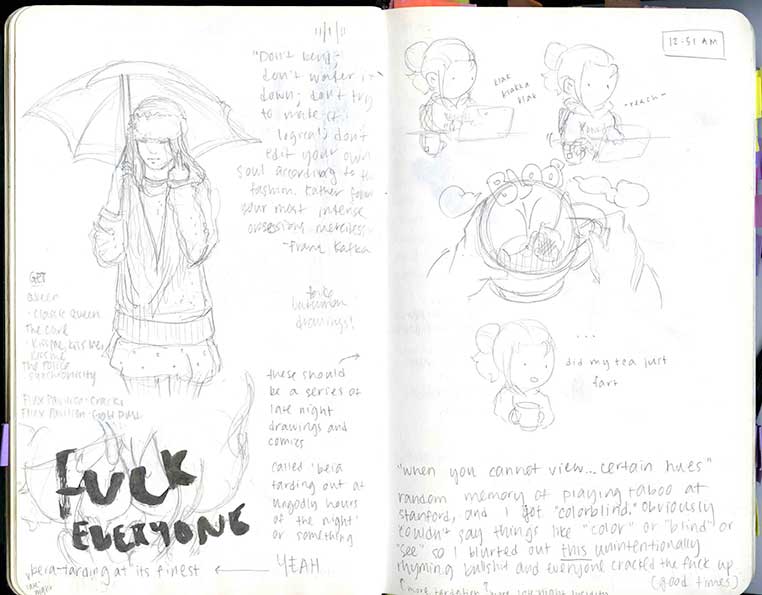 11/1/11
"Don't bend;
don't water it
down; don't try
to make it
logical; don't
edit your own
soul according to the
fashion. Rather follow
your most intense
obsessions merciless-
-Franz Kafka
GET
queen
· classic queen
the cure
· kiss me, kiss me,
kiss me
the police
synchronicity
Flux Pavilion - Cracks
Flux Pavilion - Gold Dust
drawings!
these should
be a series of
late night
drawings and
comics
called "beia
tarding out at
ungodly hours
of the night"
or something
YEAH
FUCK
EVERYONE
beia-tarding at its finest
12:51 AM
klak
klakka
klak
-reach-
...
did my tea just
fart
"when you cannot view... certain hues"
random memory of playing taboo at
stanford, and I got "colorblind." Obviously
couldn't say things like "color" or "blind" or
"see" so I blurted out this unintentionally
rhyming bullshit and everyone cracked the fuck up
(good times)
late night